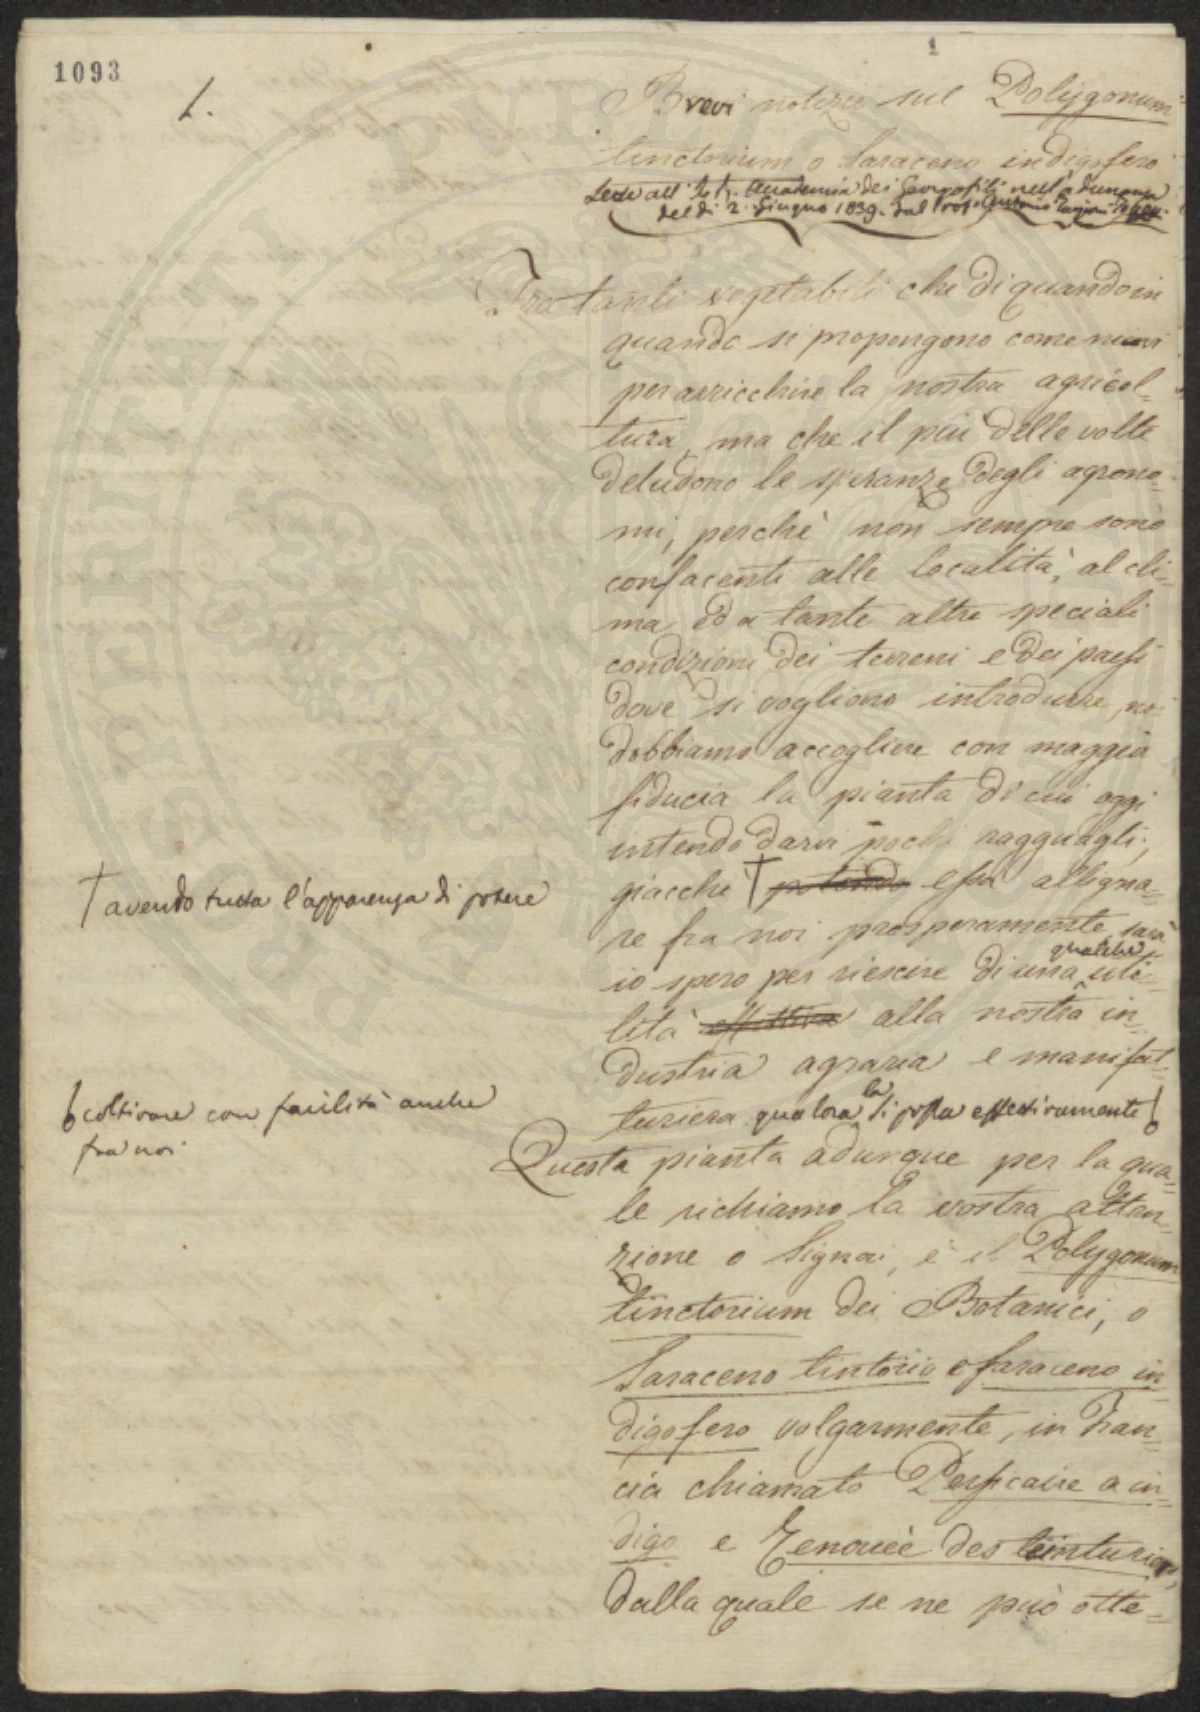 1093
1
1.
Brevi notizie sul Polygonum
tinctorium o Saraceno indigofero
Lette all' I. e R. Accademia dei Georgofili nell'adunanza
del dì 2. Giugno 1839. dal Prof. Antonio Targioni Tozzetti.
Fra tanti vegetabili che di quando in
quando si propongono come nuovi
per arricchire la nostra agricol-
tura, ma che il più delle volte
deludono le speranze degli agrono-
mi, perchè non sempre sono
confacenti alle località, al cli-
ma, ed a tante altre speciali
condizioni dei terreni e dei paesi
dove si vogliono introdurre, noi
dobbiamo accogliere con maggior
fiducia la pianta di cui oggi
intendo darvi pochi ragguagli;
giacchè † potendo essa alligna-
† avendo tutta l'apparenza di potere
re fra noi prosperamente, sarà
io spero per riescire di una qualche uti-
lità effettiva alla nostra in-
dustria agraria e manifat-
turiera qualora la si possa effettivamente
coltivare con facilità anche
fra noi
Questa pianta adunque per la qua-
le richiamo la vostra atten-
zione o Signori, è il Polygonum
tinctorium dei Botanici, o
Saraceno tintorio o Saraceno in-
digofero volgarmente, in Fran-
cia chiamato Persicaire a in-
digo e Renouée des teinturiers,
dalla quale se ne può otte-
PVBLICO
PERITLTI
PROSPERITATI